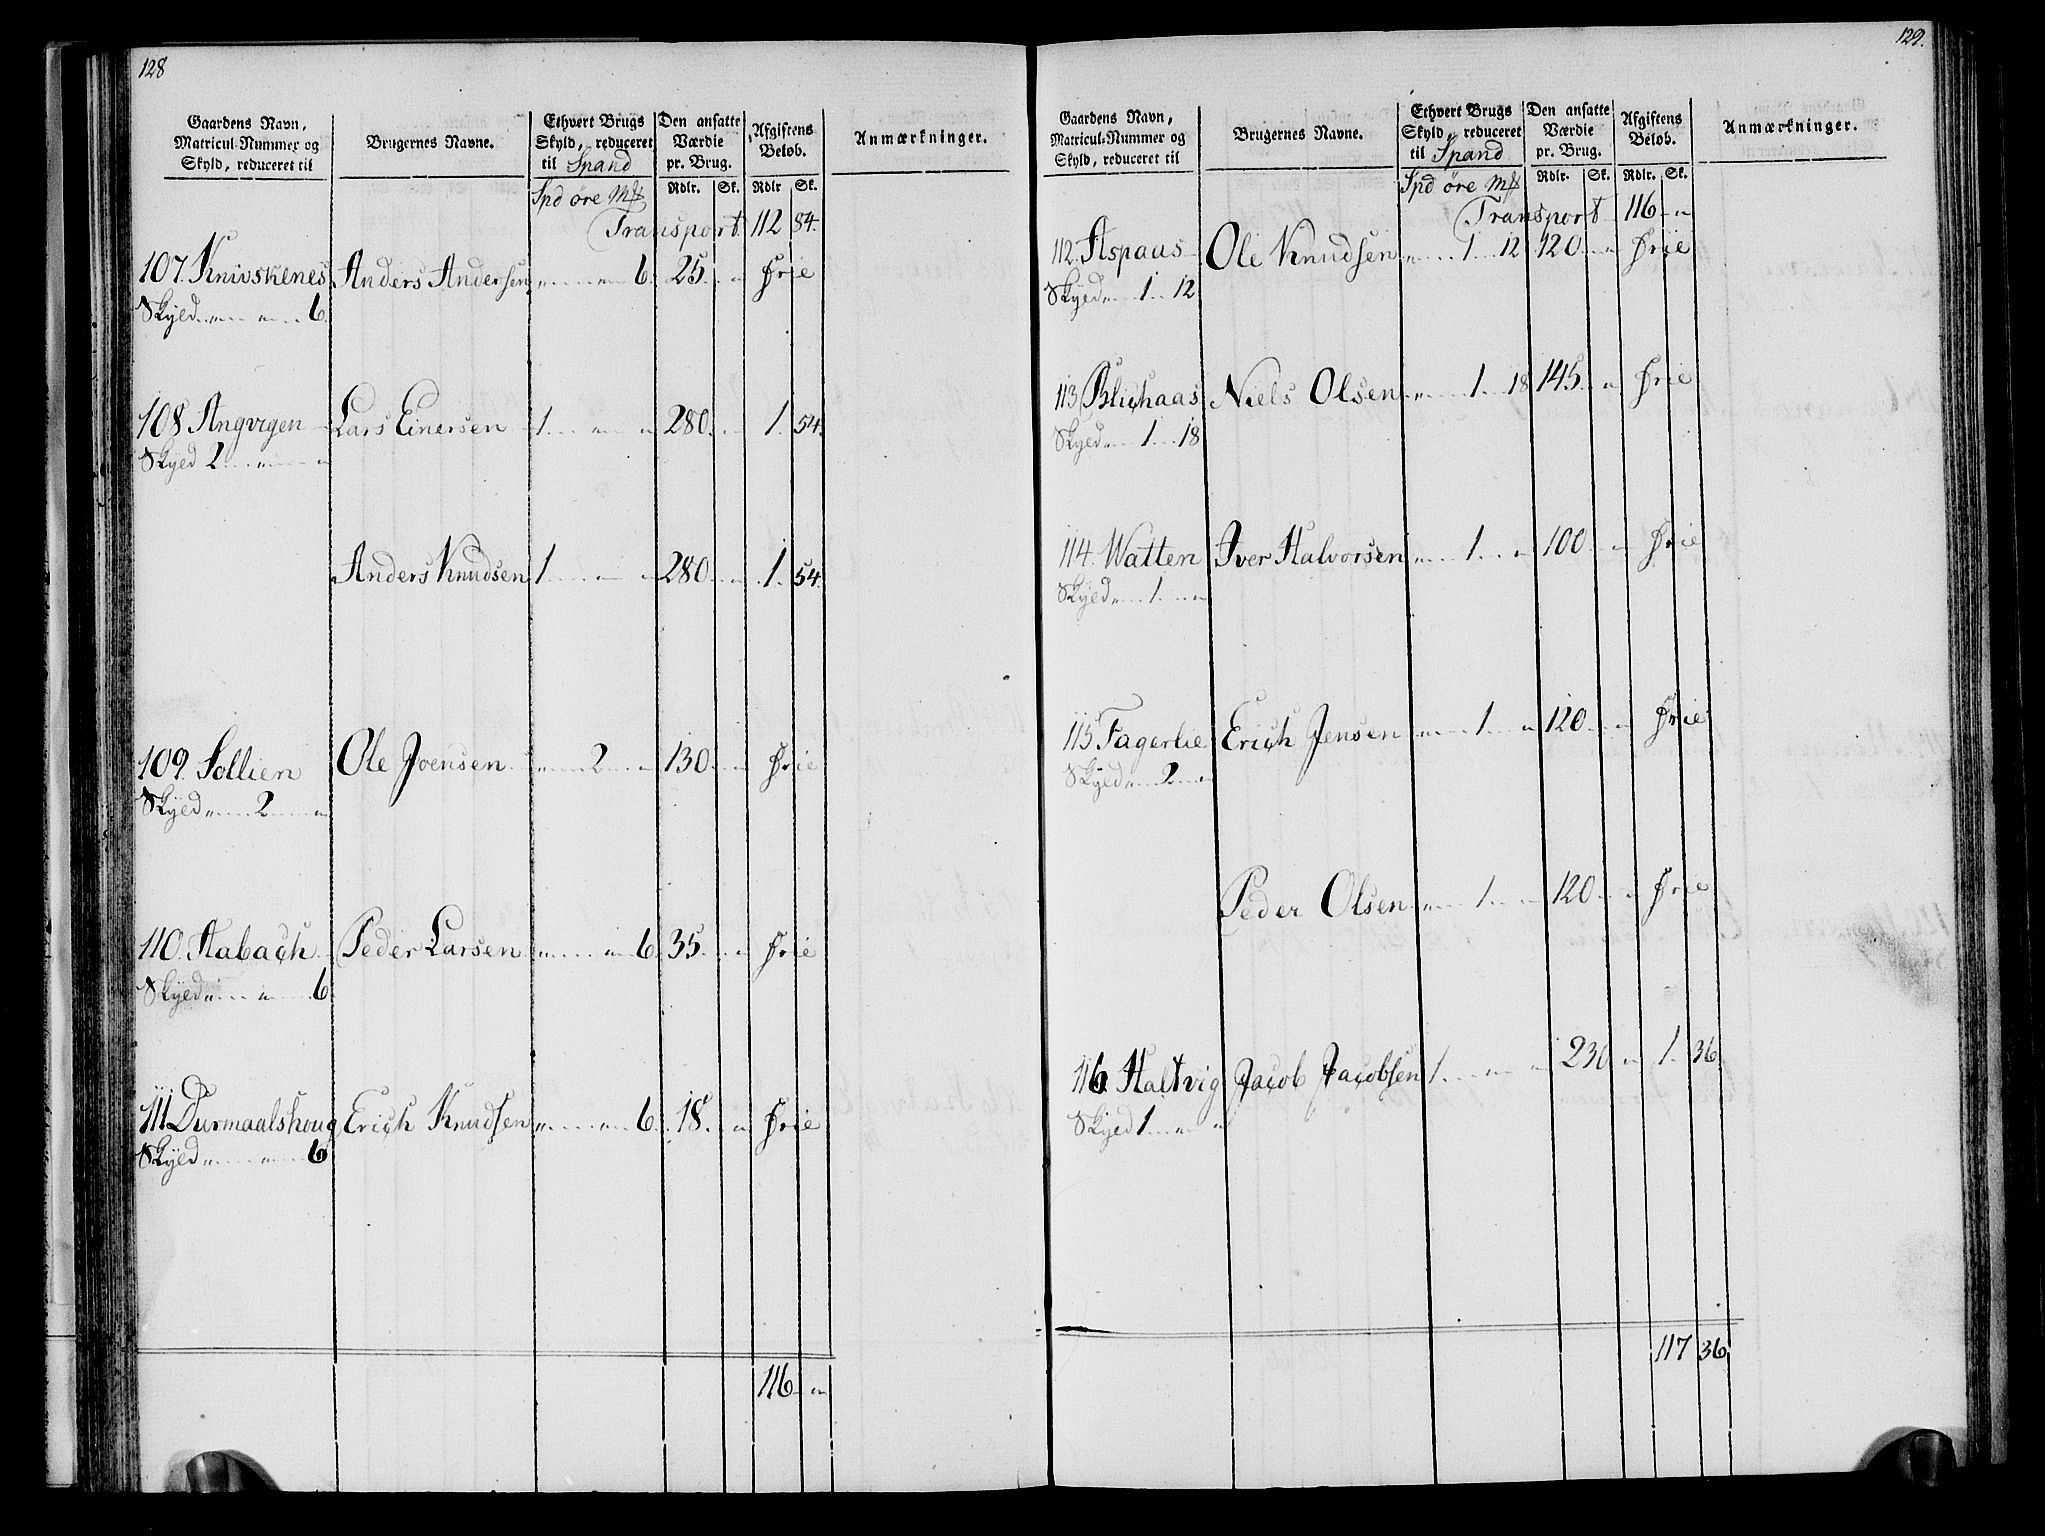 128
Gaardens Navn, Matricul-Nummer og Skyld, reduceret til
Brugernes Navne.
Ethvert Brugs Skyld, reduceret til Spand
Den ansatte Værdie pr. Brug.
Afgiftens Beløb.
Anmærkninger.
Spd øre M# Rdlr. Sk. Rdlr Sk.
Transport 112 84.
107. Knivskenes Anders Andersen „ „ 6. 25. „ Frie
Skyld „ „ 6.
108 Angvigen Lars Einersen 1 „ „ 280. „ 1. 54.
Skyld 2 „ „
Anders Knudsen 1 „ „ 280. „ 1. 54.
109. Sollien Ole Joensen „ 2 „ 130 „ Frie
Skyld „ 2 „
110. Aabach Peder Larsen „ „ 6. 35. „ Frie
Skyld „ „ 6
111 Durmaalshoug Erich Knudsen „ „ 6. 18. „ Frie
Skyld „ „ 6
116 „
129.
Gaardens Navn, Matricul-Nummer og Skyld, reduceret til
Brugernes Navne.
Ethvert Brugs Skyld, reduceret til Spand
Den ansatte Værdie pr. Brug.
Afgiftens Beløb.
Anmærkninger.
Spd øre M# Rdlr. Sk. Rdlr. Sk.
Transport 116 „
112. Aspaas Ole Knudsen „ 1 12 120 „ Frie
Skyld „ 1 12
113 Blichaas Niels Olsen „ 1 18 145. „ Frie
Skyld „ 1 18
114. Watten Iver Halvorsen „ 1 „ 100 „ Frie
Skyld „ 1 „
115 Fagerlie Erich Jensen „ 1 „ 120 „ Frie
Skyld „ 2 „
Peder Olsen „ 1 „ 120 „ Frie
116 Haltvig Jacob Jacobsen 1 „ „ 230 „ 1. 36
Skyld 1 „ „
117 36